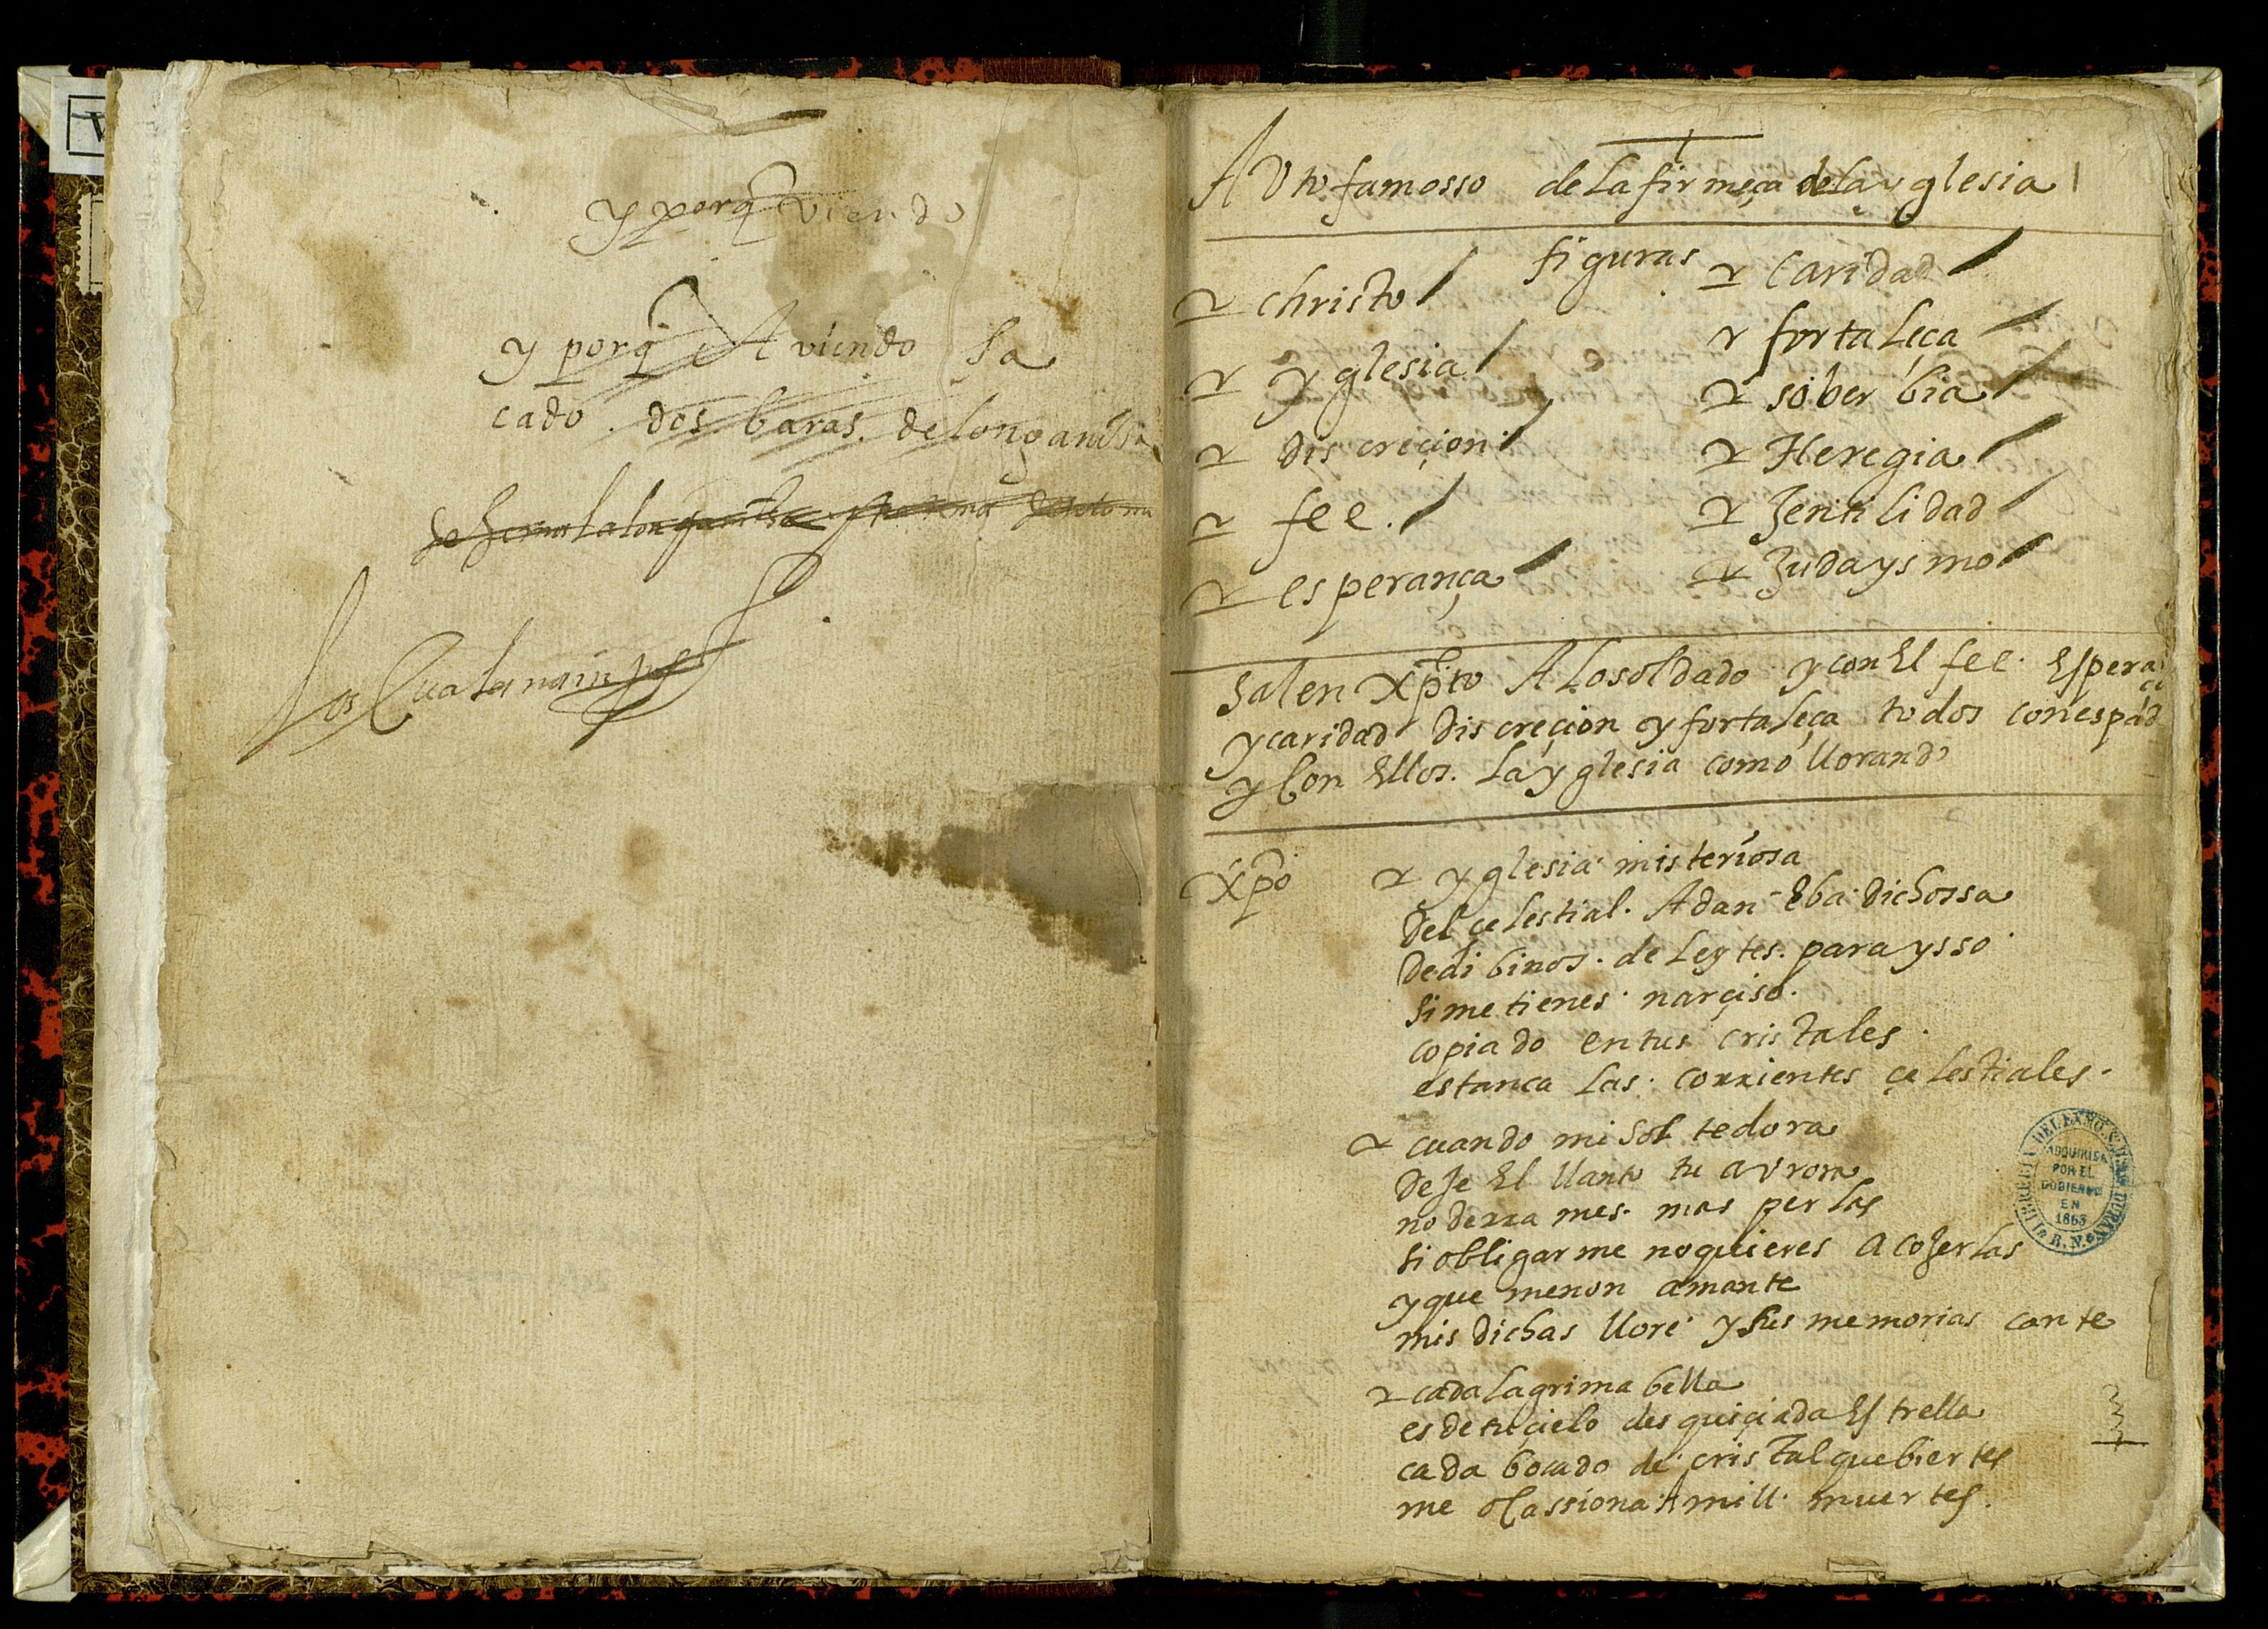 y porq viendo
y porq Aviendo sa
cado . dos . baras . de longanisa
AUto famosso de La firmeça de La yglesia
figuras
christo
yglesia
discreçion
fee .
esperança
caridad
fortaLeça
soberbia
Heregia
Jentilidad
Judaysmo
Salen Xpto A Lo soldado y con El fee . Espera
y caridad Discreçion y fortaLeça todos con espad
y Con Ellos . La yglesia como llorando
Xpo
yglesia misteriosa
Del çelestial . Adan Eba dichossa
De dibinos . deLeytes . paraysso .
si me tienes . narçiso .
copiado en tus cristales .
estanca Las . corrientes çelestiales .
cuando mi sol te dora
deje El llanto tu aurora
no derrames . mas perlas
si obligarme no quieres A cojerlas
y que menon amante
mis dichas llore y sus memorias cante
cada Lagrima bella
es de tu çielo desquiçiada Estrella
cada bocado de cristal que biertes
me ocassiona mill . muertes .
LIBRERIA DEL EXMO. S. D. A. DURAN
ADQUIRIDA
POR EL
GOBIERNO
EN
1863
B. N.